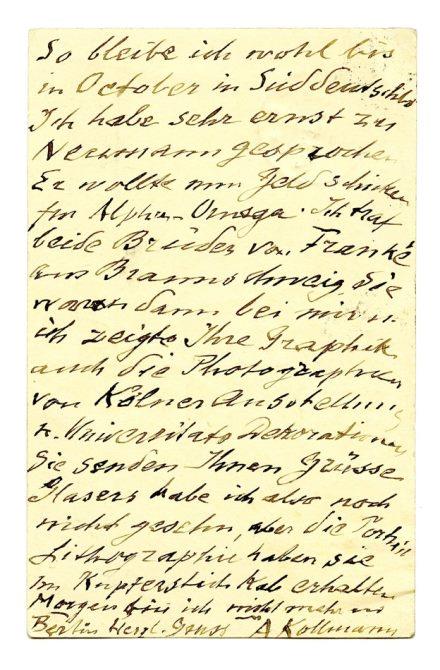 So bleibe ich wohl bis
in October in Süddeutschld
Ich habe sehr ernst zu
Neumann gesprochen
Er wollte nun Geld schicken
für Alpha-Omega. Ich traf
beide Brüder von Franke
aus Braunschweig. Sie
waren dann bei mir u.
ich zeigte Ihre Graphik
auch die Photographien
von Kölner Ausstellung
u. Universitäts Dekorationen
Sie senden Ihnen Grüsse
Glasers habe ich also noch
nicht gesehn, aber die Porträt
Lithographie haben sie
im Kupferstich Kab erhalten
Morgen bin ich nicht mehr in
Berlin Herzl. Gruss A Kollmann